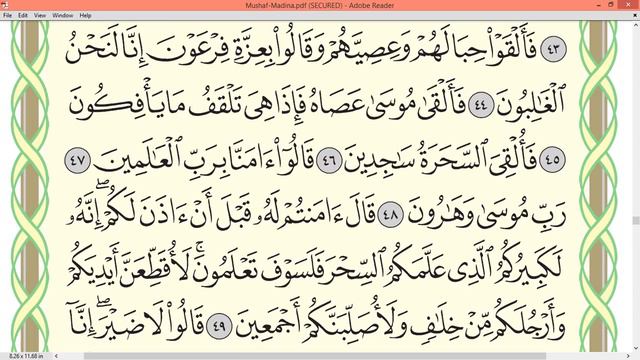 Mushaf-Madina.pdf (SECURED) - Adobe Reader
File Edit View Window Help
٤٣ فَأَلْقَوْا۟ حِبَالَهُمْ وَعِصِيَّهُمْ وَقَالُوا۟ بِعِزَّةِ فِرْعَوْنَ إِنَّا لَنَحْنُ
ٱلْغَٰلِبُونَ ٤٤ فَأَلْقَىٰ مُوسَىٰ عَصَاهُ فَإِذَا هِىَ تَلْقَفُ مَا يَأْفِكُونَ
٤٥ فَأُلْقِىَ ٱلسَّحَرَةُ سَٰجِدِينَ ٤٦ قَالُوٓا۟ ءَامَنَّا بِرَبِّ ٱلْعَٰلَمِينَ ٤٧
رَبِّ مُوسَىٰ وَهَٰرُونَ ٤٨ قَالَ ءَامَنتُمْ لَهُۥ قَبْلَ أَنْ ءَاذَنَ لَكُمْ ۖ إِنَّهُۥ
لَكَبِيرُكُمُ ٱلَّذِى عَلَّمَكُمُ ٱلسِّحْرَ فَلَسَوْفَ تَعْلَمُونَ ۚ لَأُقَطِّعَنَّ أَيْدِيَكُمْ
وَأَرْجُلَكُم مِّنْ خِلَٰفٍ وَلَأُصَلِّبَنَّكُمْ أَجْمَعِينَ ٤٩ قَالُوا۟ لَا ضَيْرَ ۖ إِنَّآ
8.26 x 11.68 in